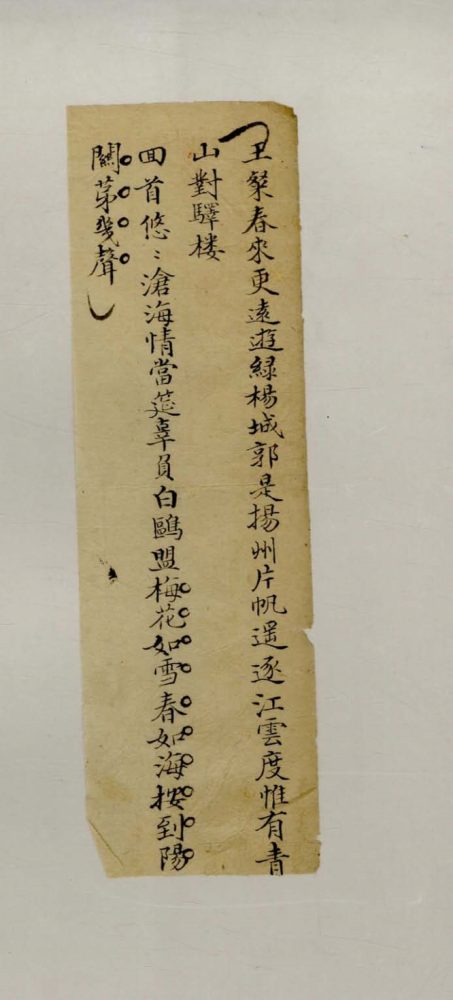 王粲春來更遠遊綠楊城郭是揚州片帆遥逐江雲度惟有青
山對驛楼
回首悠〻滄海情當筵辜負白鷗盟梅花如雪春如海按到陽
關第幾聲